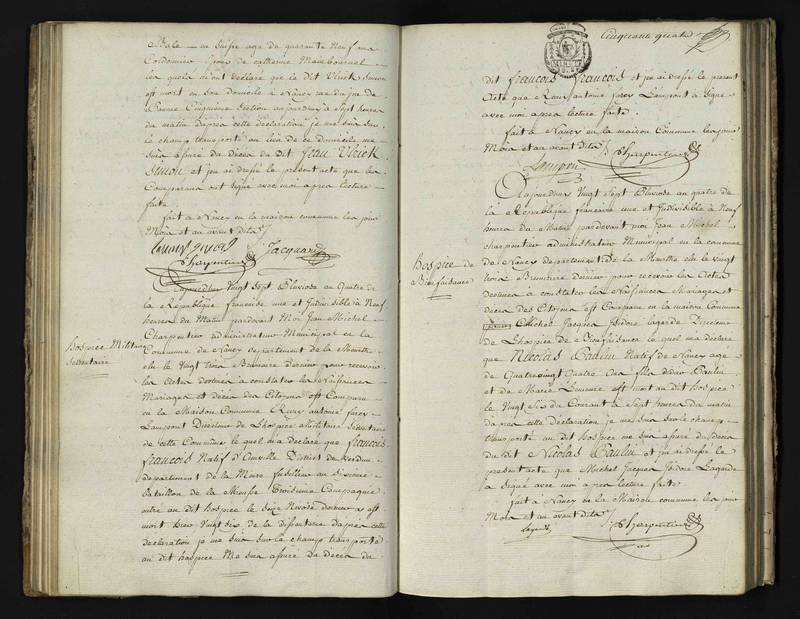 Bale en Suisse age de quarante neuf ans
Cordonnier Epoux de catherine
les quels m'ont declaré que le dit Ulrick Simon
est mort en son domicile à Nancy rue du
cinquieme Section aujourdhuy à Sept heures
du matin d'après cette déclaration je me suis sur
le champ transporté au lieu de ce domicile me
suis assuré du Décès du dit Jean Ulrick
Simon et j'en ai dressé le present acte que les
Comparans ont Signé avec moi apres lecture
faite
fait à Nancy en la maison commune les jour
Mois et an avant dits
Jacquard
Charpentier
Hospice Militaire
Sedentaire
Aujourdhuy Vingt Sept Pluviose an Quatre de
la République française une et Indivisible à Neuf
heures du Matin pardevant Moi Jean Michel
Charpentier administrateur Municipal en la
Commune de Nancy departement de la Meurthe
elu le Vingt trois Brumaire dernier pour recevoir
les actes destinés à constater les Naissances
Mariages et décès des Citoyens est Comparu
en la Maison Commune antoine
Directeur de Lhospice Militaire Sedentaire
de cette Commune le quel m'a déclaré que françois
françois Natif d'Omville District de Verdun
departement de la Meuse fusillier au dixieme
bataillon de la Meuse Troisieme Compagnie
entré au dit hospice le Seize Nivose dernier y est
mort hier Vingt Six de la dissenterie Dapres cette
declaration je me suis sur le champ transporté
au dit hospice Me suis assuré du décès du
Cinquante quatre
dit françois françois et j'en ai dressé le present
Acte que antoine à signé
avec moi apres lecture faite.
fait à Nancy en la maison Commune les jour
Mois et an avant dits
Charpentier
Hospice de
Bienfaisance
Aujourdhuy Vingt Sept Pluviose an quatre de
la République française une et Indivisible à Neuf
heures du Matin pardevant moi Jean Michel
charpentier administrateur Municipal en la commune
de Nancy departement de la Meurthe elu le vingt
trois Brumaire dernier pour recevoir les Actes
destinés à constater les Naissances Mariages et
décès des Citoyens est Comparu en la maison Commune
Michel Jacques Isidore Lagarde Directeur
de Lhospice de Bienfaisance le quel ma déclaré
que Nicolas Paulin Natif de Nancy age
de Quatrevingt Quatre ans fils de Paulin
et de Marie est mort au dit hospice
le Vingt Six du Courant à Sept heures du matin
d'après cette déclaration je me suis sur le champ
transporté au dit hospice me suis assuré du décès
du dit Nicolas Paulin et j'en ai dressé le
present acte que Michel Jacques Isidore Lagarde
à Signé avec moi apres lecture faite
fait à Nancy en la Maison commune les jour
Mois et an avant dits
Charpentier